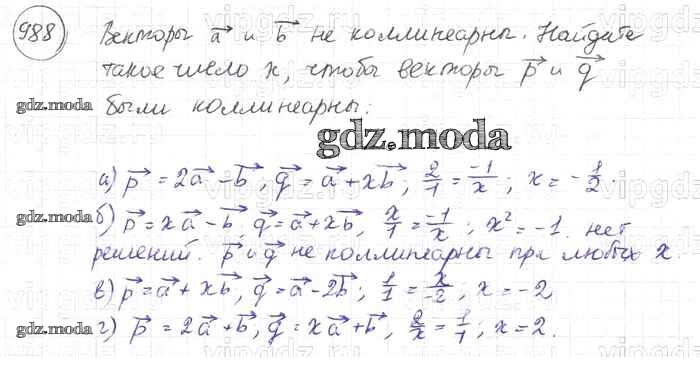 988
Векторы a⃗ и b⃗ не коллинеарны. Найдите
такое число x, чтобы векторы p⃗ и q⃗
gdz.moda были коллинеарны:
gdz.moda
а) p⃗ = 2a⃗ - b⃗, q⃗ = a⃗ + xb⃗; 2/1 = -1/x; x = -1/2.
gdz.moda б) p⃗ = xa⃗ - b⃗, q⃗ = a⃗ + xb⃗, x/1 = -1/x; x² = -1. нет
решений. p⃗ и q⃗ не коллинеарны при любых x.
в) p⃗ = a⃗ + xb⃗, q⃗ = a⃗ - 2b⃗; 1/1 = x/-2; x = -2
gdz.moda г) p⃗ = 2a⃗ + b⃗, q⃗ = xa⃗ + b⃗, 2/x = 1/1; x = 2.